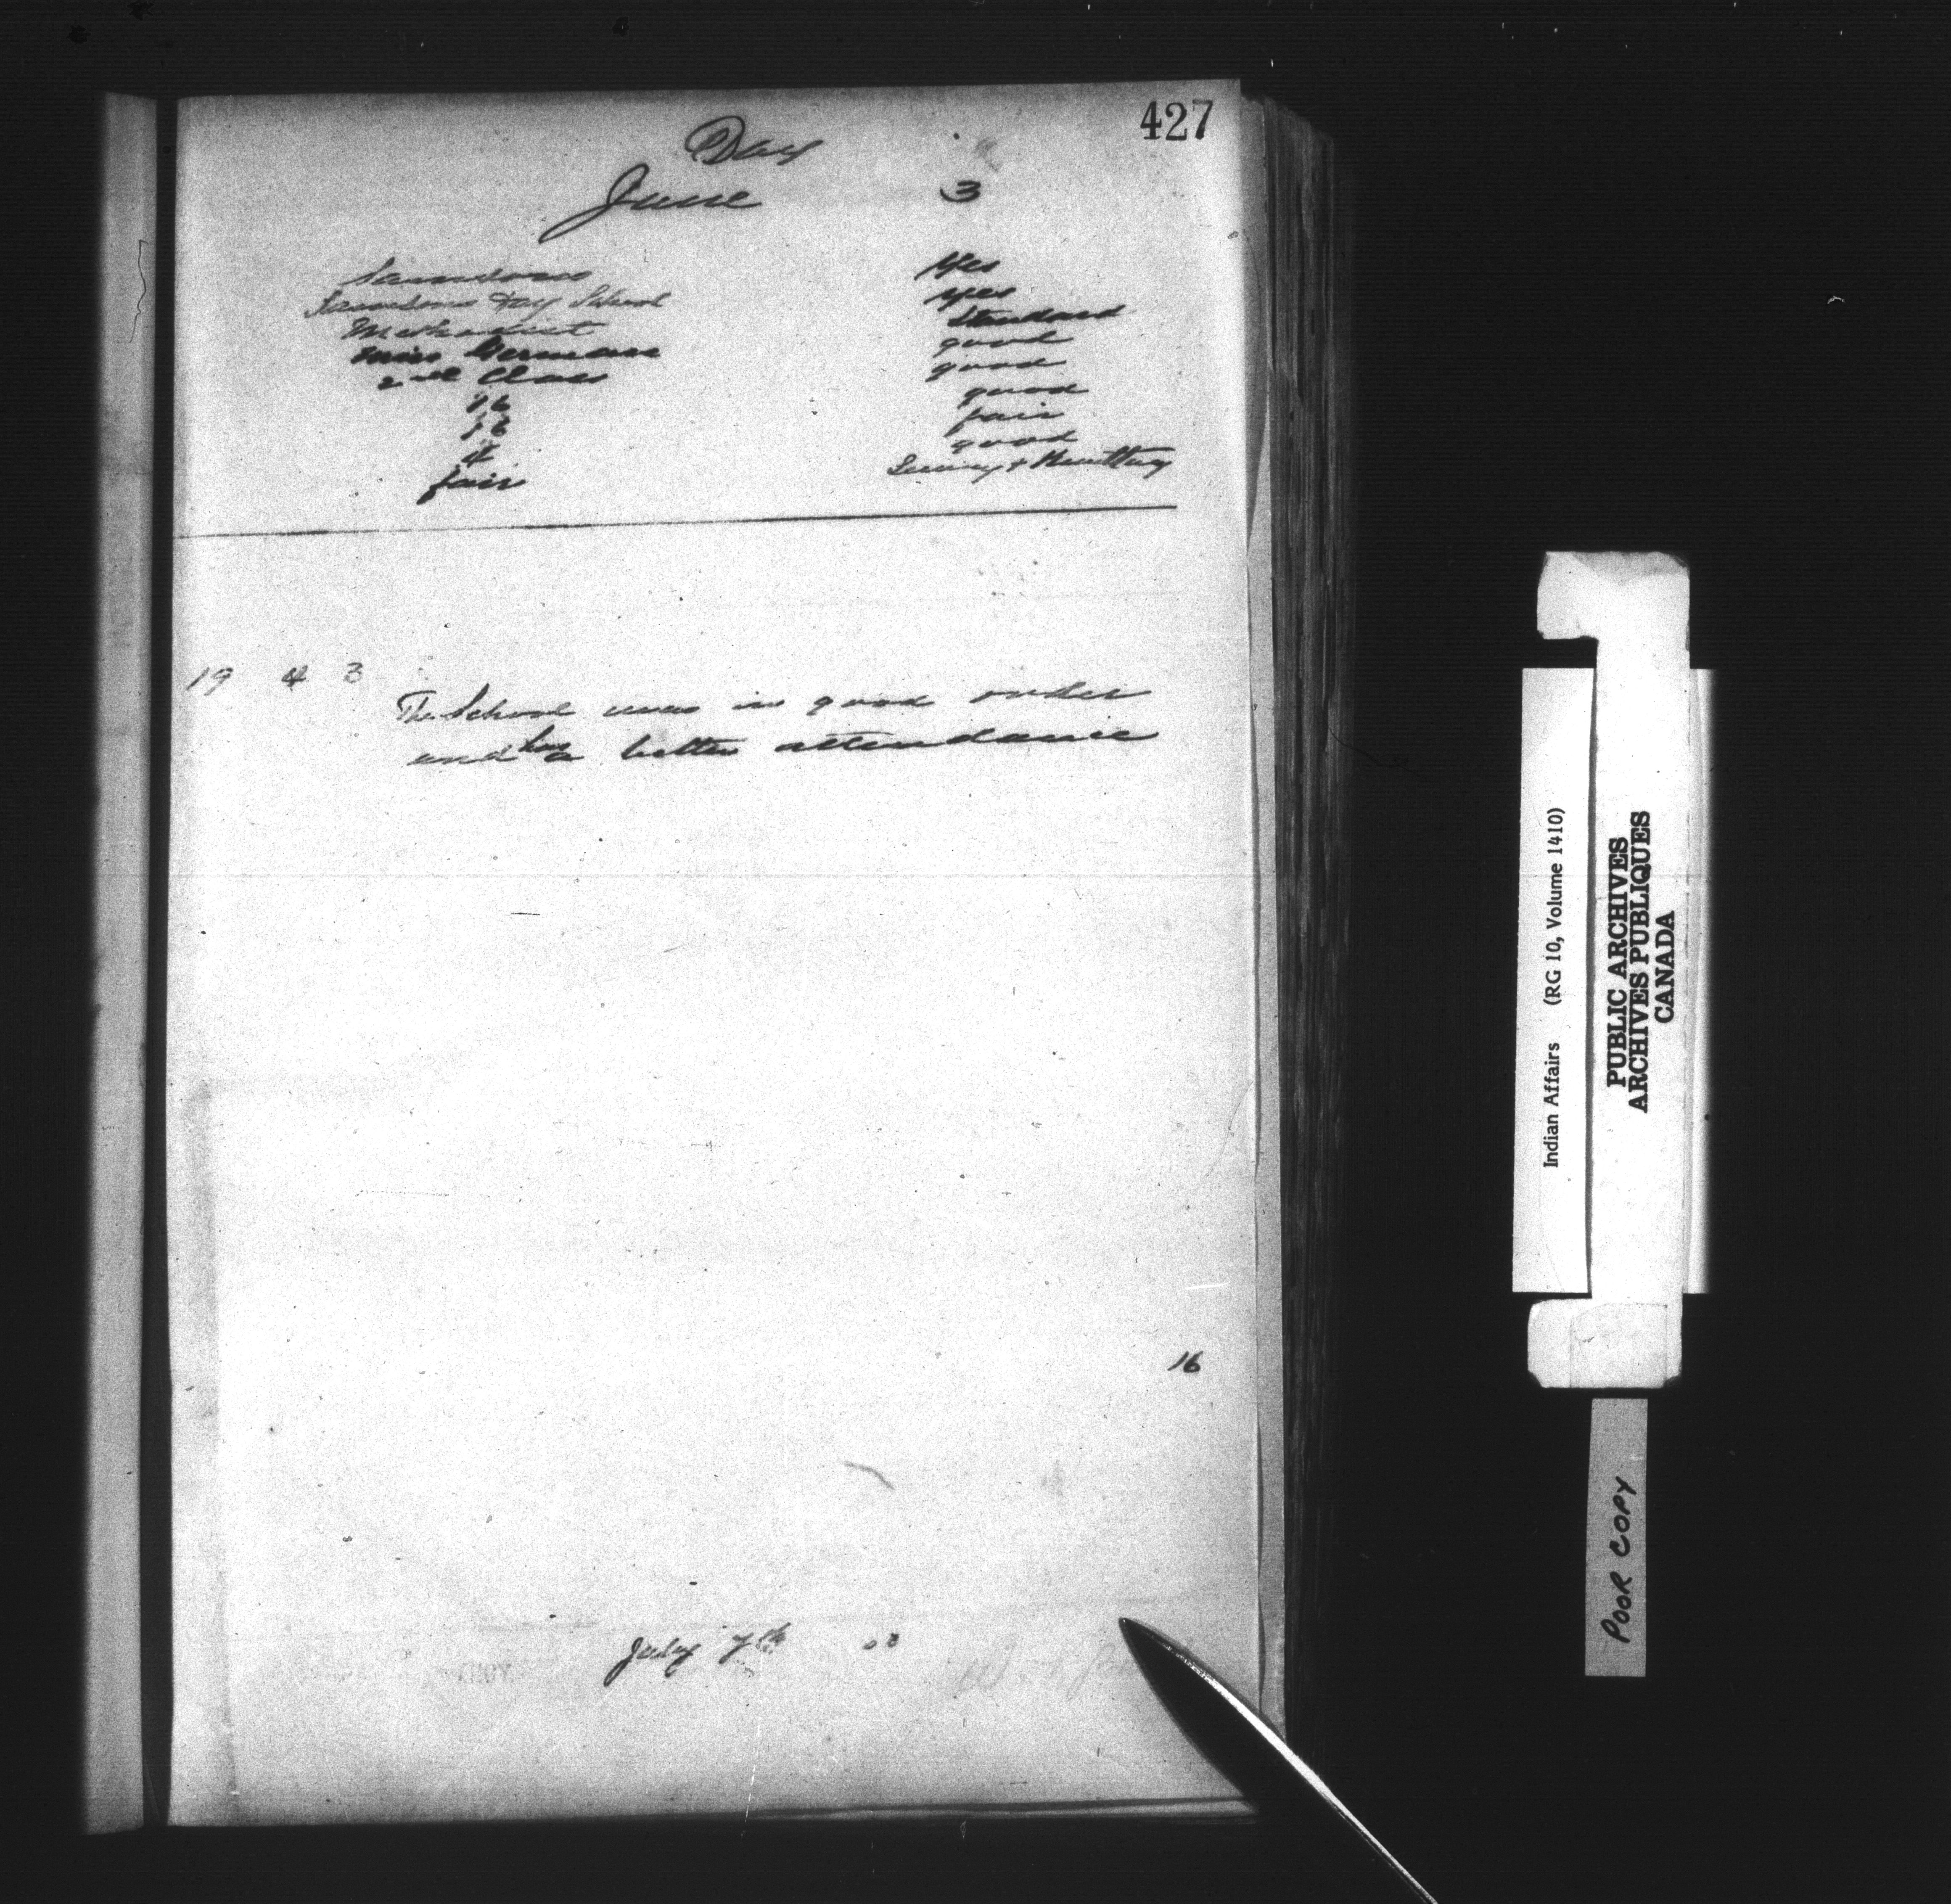 427
Day
June 3
Samsons
Samsons Day School
Methodist
Miss German
2nd Class
16
16
4
fair
Yes
yes
Standard
good
good
good
fair
good
Sewing & Knitting
19 4 3
The School was in good order
and has a better attendance
16
July 7th 03
Indian Affairs (RG 10, Volume 1410)
PUBLIC ARCHIVES
ARCHIVES PUBLIQUES
CANADA
POOR COPY